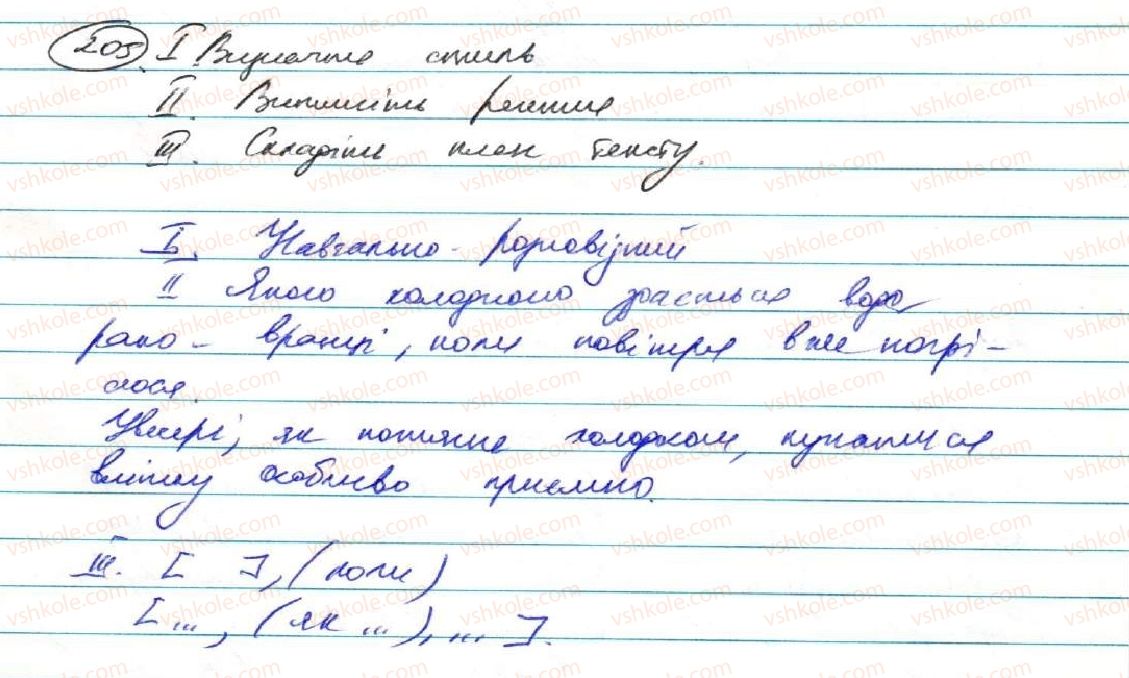 205. I Визначте стиль
II. Випишіть речення
III. Складіть план тексту.
I. Навчально-розповідний
II Якою холодною здається вода
рано-вранці, коли повітря вже погрі-
лося.
Увечері, як потягне холодком, купатися
влітку особливо приємно.
III. [ ], (коли)
[..., (як ...), ... ].